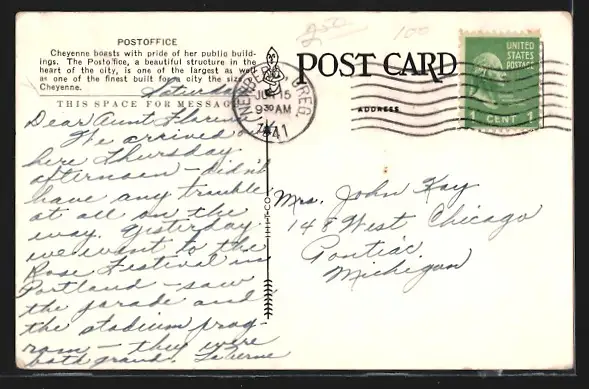 POSTOFFICE
Cheyenne boasts with pride of her public build-
ings. The Postoffice, a beautiful structure in the
heart of the city, is one of the largest as well
as one of the finest built for a city the size of
Cheyenne.
Saturday
THIS SPACE FOR MESSAGE
Dear Aunt Florence
We arrived out
here Thursday
afternoon - didn't
have any trouble
at all on the
way. Yesterday
we went to the
Rose Festival in
Portland - saw
the parade and
the stadium prog-
ram - they were
both grand. Laverne
250
100
NEWBERG OREG.
JUN 15
930 AM
1941
POST CARD
ADDRESS
UNITED
STATES
POSTAGE
1 CENT 1
Mrs. John Kay
148 West Chicago
Pontiac
Michigan